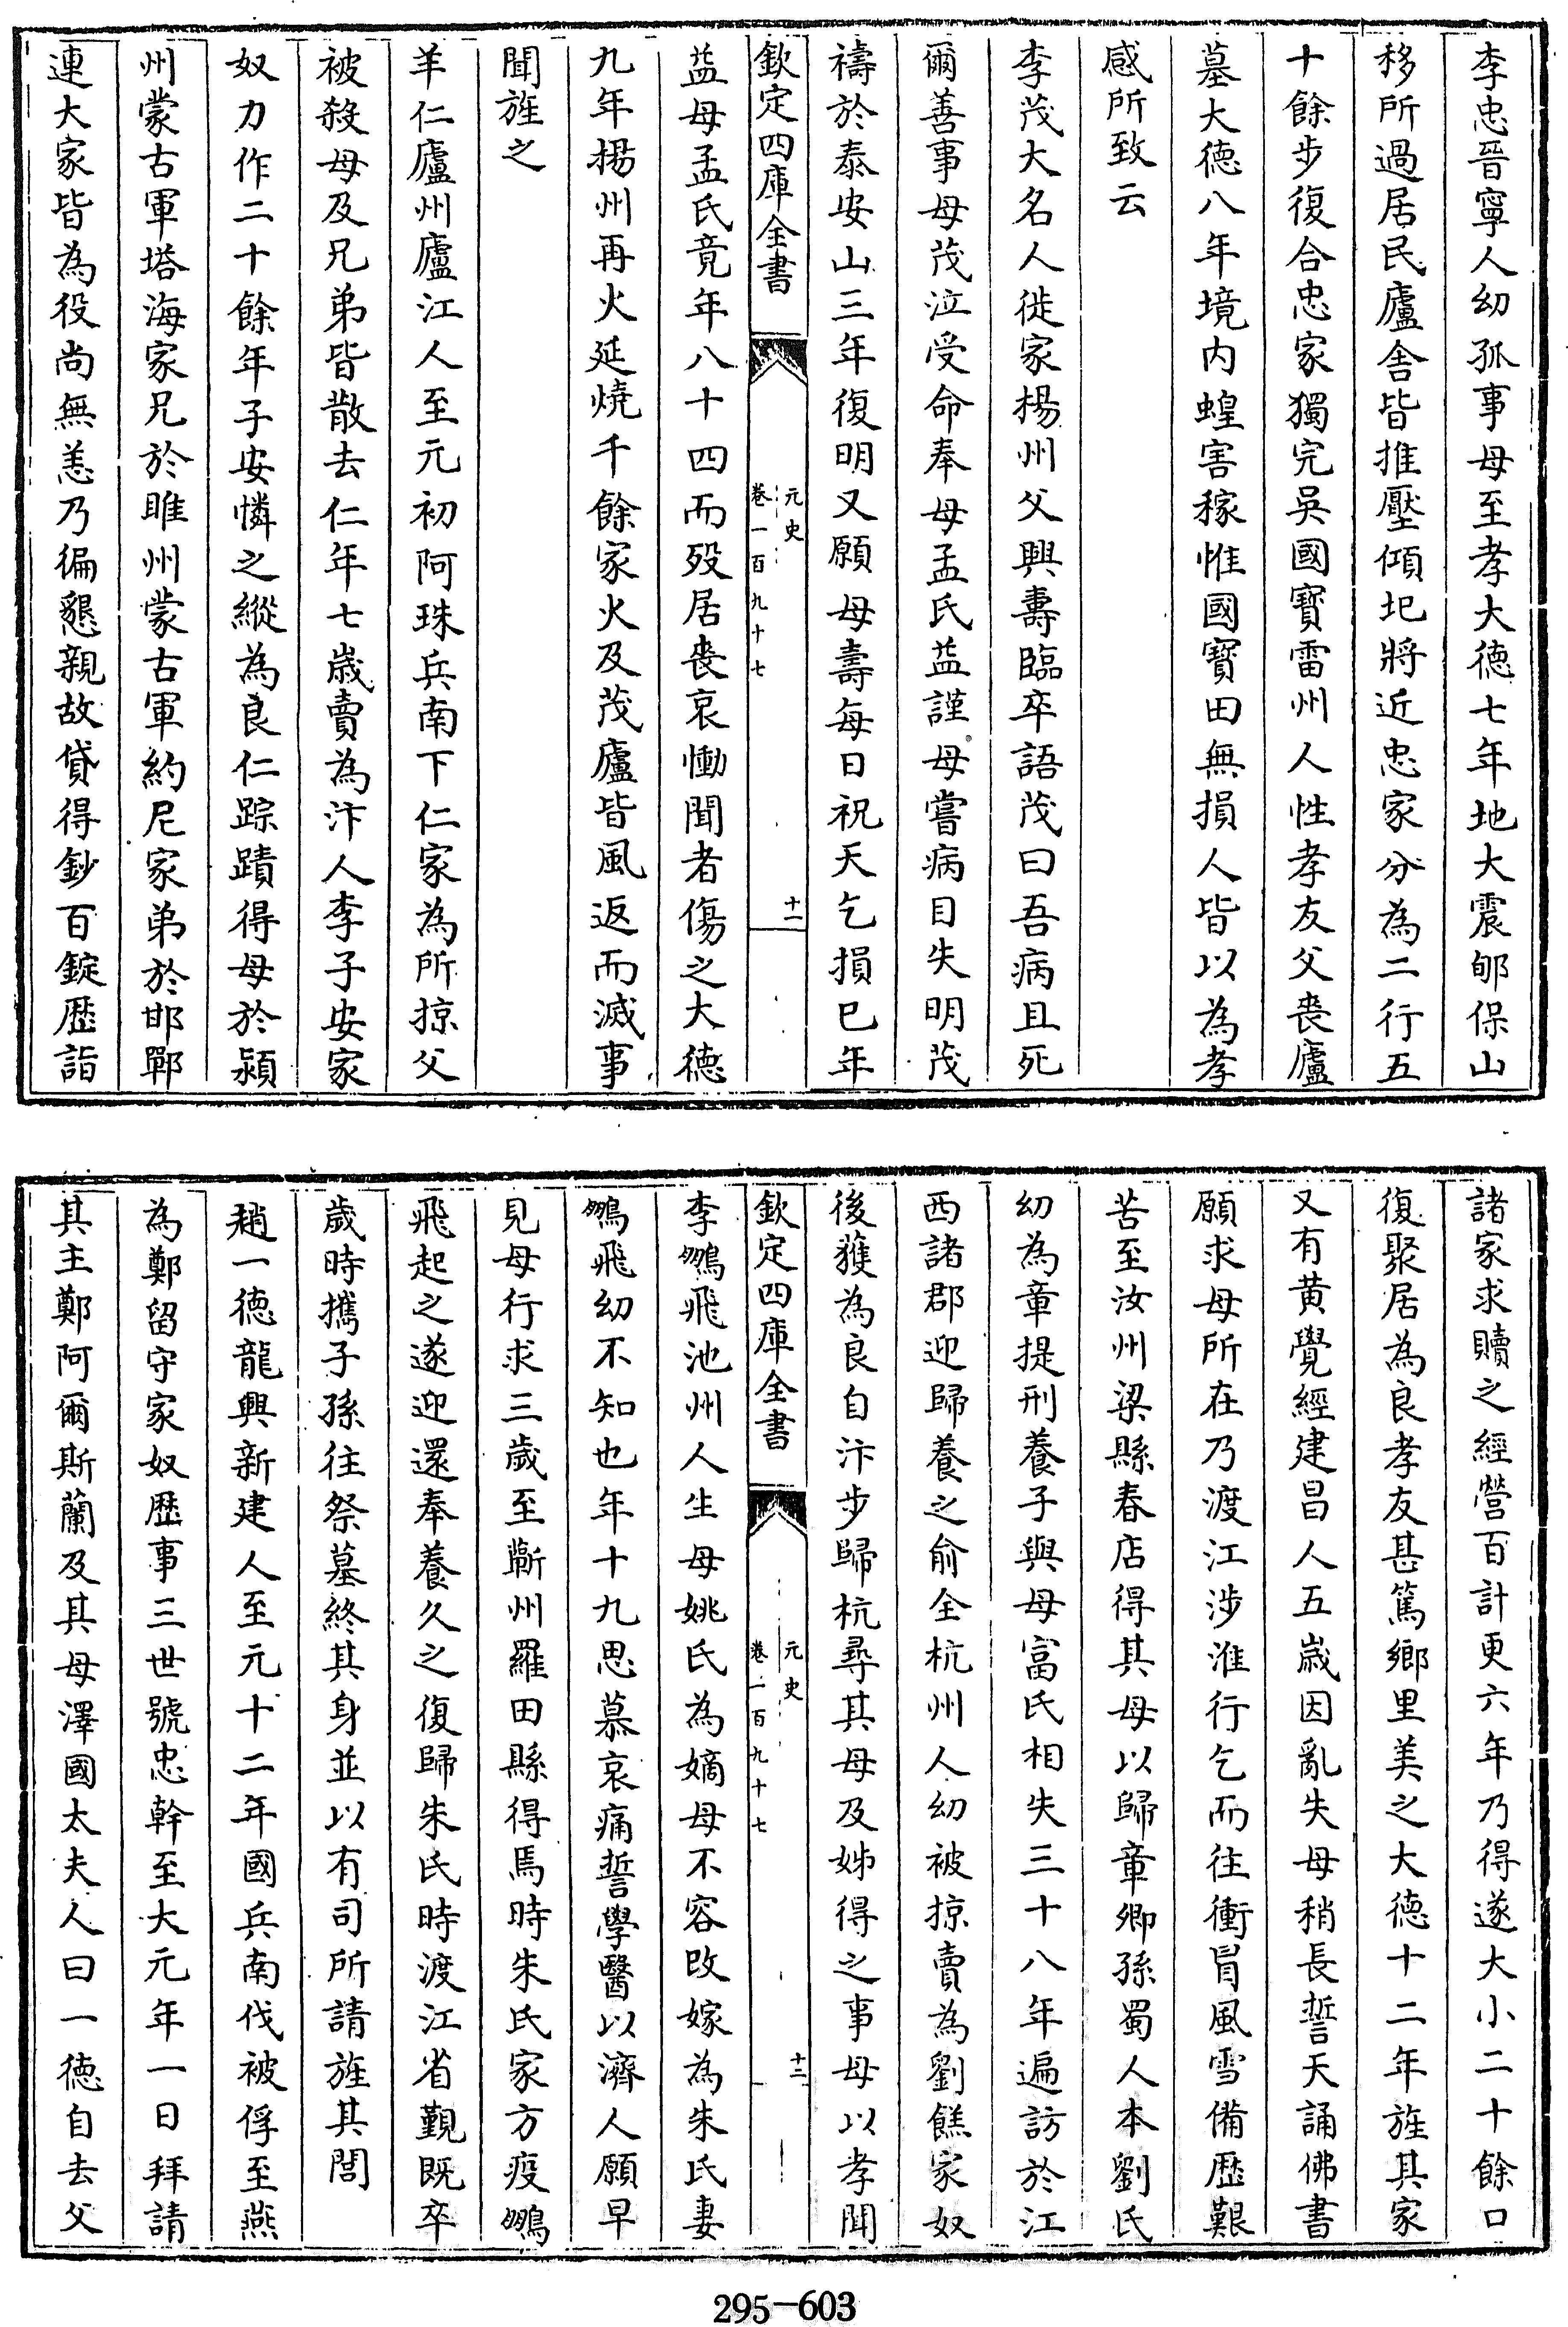 李忠晉寧人幼孤事母至孝大徳七年地大震郇保山
移所過居民廬舎皆推壓傾圯將近忠家分為二行五
十餘步復合忠家獨完吳國寳雷州人性孝友父喪廬
墓大徳八年境内蝗害稼惟國寳田無損人皆以為孝
感所致云
李茂大名人徙家揚州父興壽臨卒語茂曰吾病且死
爾善事母茂泣受命奉母孟氏益謹母嘗病目失明茂
禱於泰安山三年復明又願母壽每日祝天乞損已年
欽定四庫全書
元史
卷一百九十七
十一
益母孟氏竟年八十四而殁居喪哀慟聞者傷之大徳
九年揚州再火延燒千餘家火及茂廬皆風返而滅事
聞旌之
羊仁廬州廬江人至元初阿珠兵南下仁家為所掠父
被殺母及兄弟皆散去仁年七歳賣為汴人李子安家
奴力作二十餘年子安憐之縱為良仁踪蹟得母於潁
州蒙古軍塔海家兄於睢州蒙古軍約尼家弟於邯鄲
連大家皆為役尚無恙乃徧懇親故貸得鈔百錠歴詣
諸家求贖之經營百計更六年乃得遂大小二十餘口
復聚居為良孝友甚篤鄉里美之大徳十二年旌其家
又有黄覺經建昌人五歳因亂失母稍長誓天誦佛書
願求母所在乃渡江涉淮行乞而往衝冒風雪備歴艱
苦至汝州梁縣春店得其母以歸章卿孫蜀人本劉氏
幼為章提刑養子與母富氏相失三十八年遍訪於江
西諸郡迎歸養之俞全杭州人幼被掠賣為劉饒家奴
後獲為良自汴步歸杭尋其母及姊得之事母以孝聞
欽定四庫全書
元史
卷一百九十七
十二
李鵬飛池州人生母姚氏為嫡母不容改嫁為朱氏妻
鵬飛幼不知也年十九思慕哀痛誓學醫以濟人願早
見母行求三歲至蘄州羅田縣得焉時朱氏家方疫鵬
飛起之遂迎還奉養久之復歸朱氏時渡江省覲既卒
歲時攜子孫往祭墓終其身並以有司所請旌其閭
趙一徳龍興新建人至元十二年國兵南伐被俘至燕
為鄭留守家奴歴事三世號忠幹至大元年一日拜請
其主鄭阿爾斯蘭及其母澤國太夫人曰一徳自去父
295-603